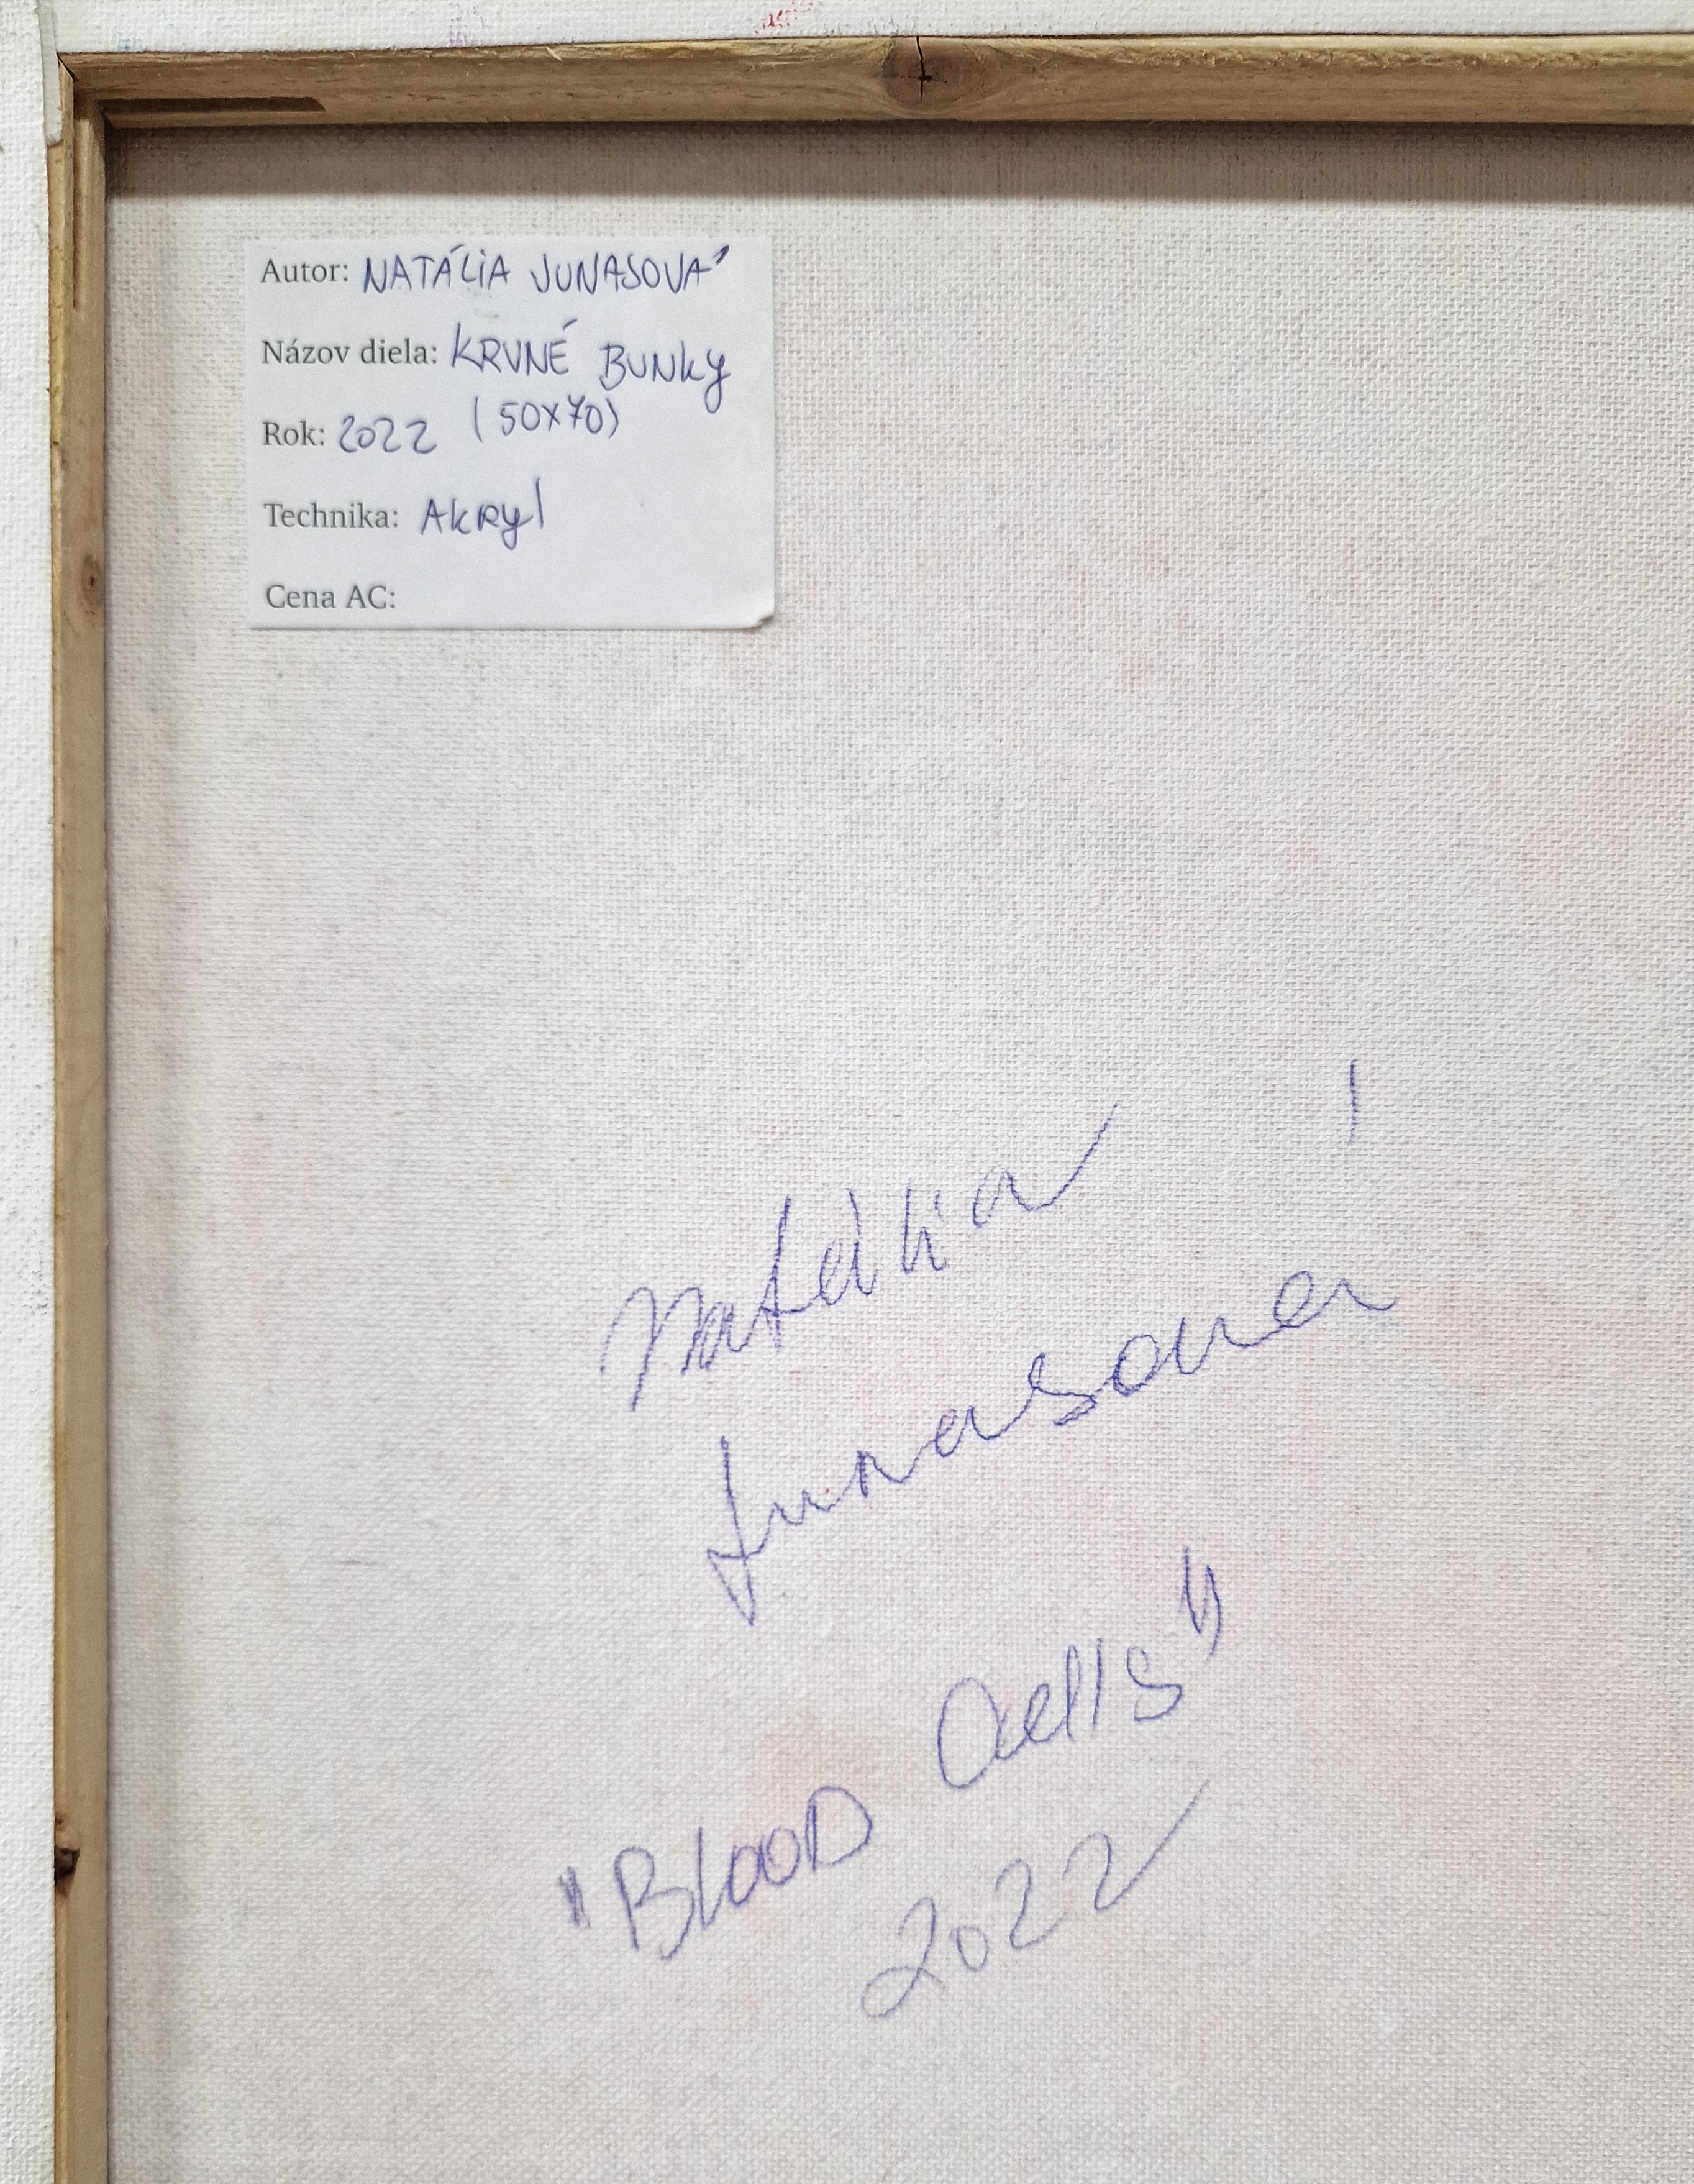 Autor: NATÁLIA JUNASOVÁ
Názov diela: KRVNÉ BUNKY
Rok: 2022 (50x70)
Technika: AKRYL
Cena AC:
Natália
Junasová
"Blood Cells"
2022